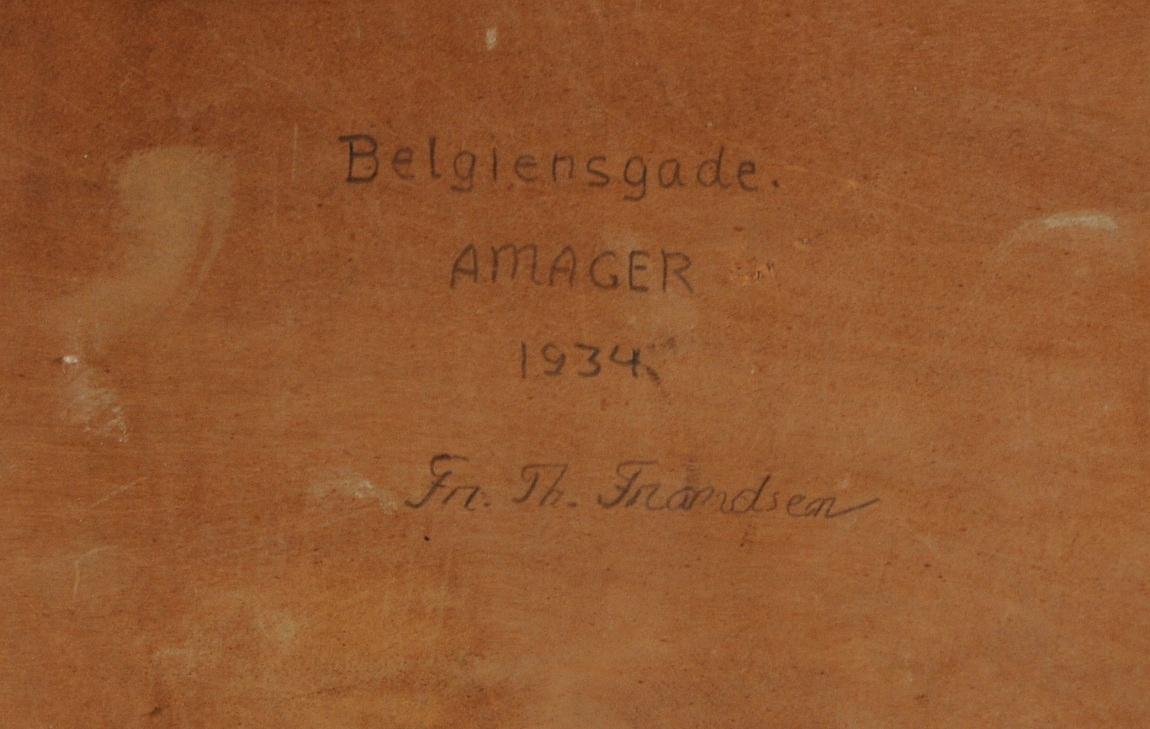 Belgiensgade.
AMAGER
1934.
Fr. Th. Frandsen